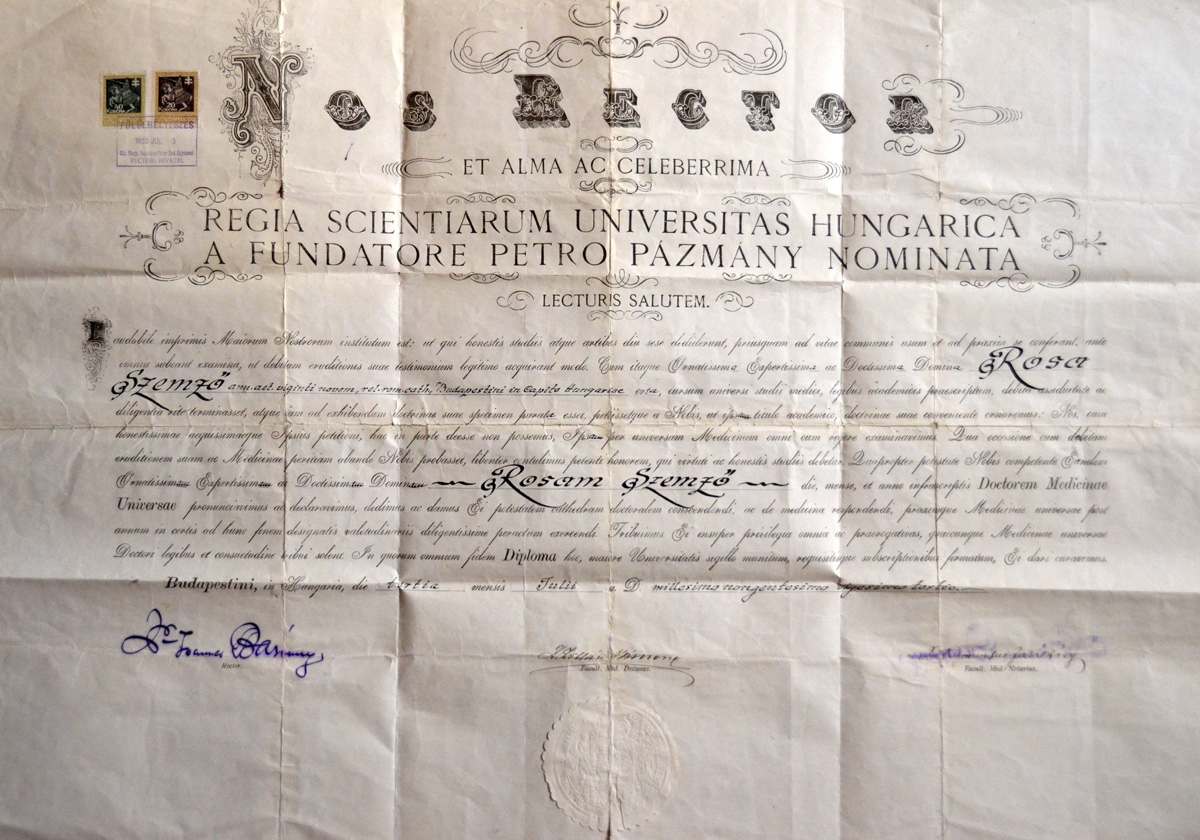 NOS RECTOR
ET ALMA AC CELEBERRIMA
REGIA SCIENTIARUM UNIVERSITAS HUNGARICA
A FUNDATORE PETRO PÁZMÁNY NOMINATA
LECTURIS SALUTEM.
Laudabile imprimis Maiorum Nostrorum institutum est: ut qui honestis studiis atque artibus diu sese dediderunt, priusquam ad vitae communis usum et ad praxim se conferant, ante
omnia subeant examina, ut debitum eruditionis suae testimonium legitimo acquirant modo. Cum itaque Ornatissima Expertissima ac Doctissima Domina Rosa
Szemző ann. aet. viginti novem, rel. rom. cath., Budapestini in Capite Hungariae orta, cursum universi studii medici, legibus academicis praescriptum, debita assiduitate ac
diligentia rite terminasset, atque iam ad exhibendum doctrinae suae specimen parata esset, petiissetque a Nobis, ut ipsam titulo academico, doctrinae suae conveniente ornaremus: Nos eam
honestissimae aequissimaeque Ipsius petitioni, hac in parte deesse non possemus, Ipsam per universam Medicinam omni cum rigore examinavimus. Qua occasione cum debitam
eruditionem suam ac Medicinae peritiam abunde Nobis probasset, libenter contulimus petenti honorem, qui virtuti ac honestis studiis debetur. Quapropter potestate Nobis competente Eandem
Ornatissimam Expertissimam ac Doctissimam Dominam Rosam Szemző die, mense, et anno infrascriptis Doctorem Medicinae
Universae pronunciavimus ac declaravimus, dedimus ac damus Ei potestatem cathedram doctoralem conscendendi, ac de medicina respondendi, praxinque Medicinae universae post
annum in certis ad hunc finem designatis valetudinariis diligentissime peractum exercendi. Tribuimus Ei insuper privilegia omnia ac praerogativas, quaecunque Medicinae universae
Doctori legibus et consuetudine tribui solent. In quorum omnium fidem Diploma hoc, maiore Universitatis sigillo munitum, requisitisque subscriptionibus firmatum, Ei dari curavimus.
Budapestini, in Hungaria, die tertia mensis Julii a D. millesimo nongentesimo vigesimo tertio.
Dr. Joannes Bársony
Rector.
Facult. Med. Decanus.
Facult. Med. Notarius.
20
20
FELÜLBÉLYEGZÉS
1923 JUL. 3
RECTORI HIVATAL